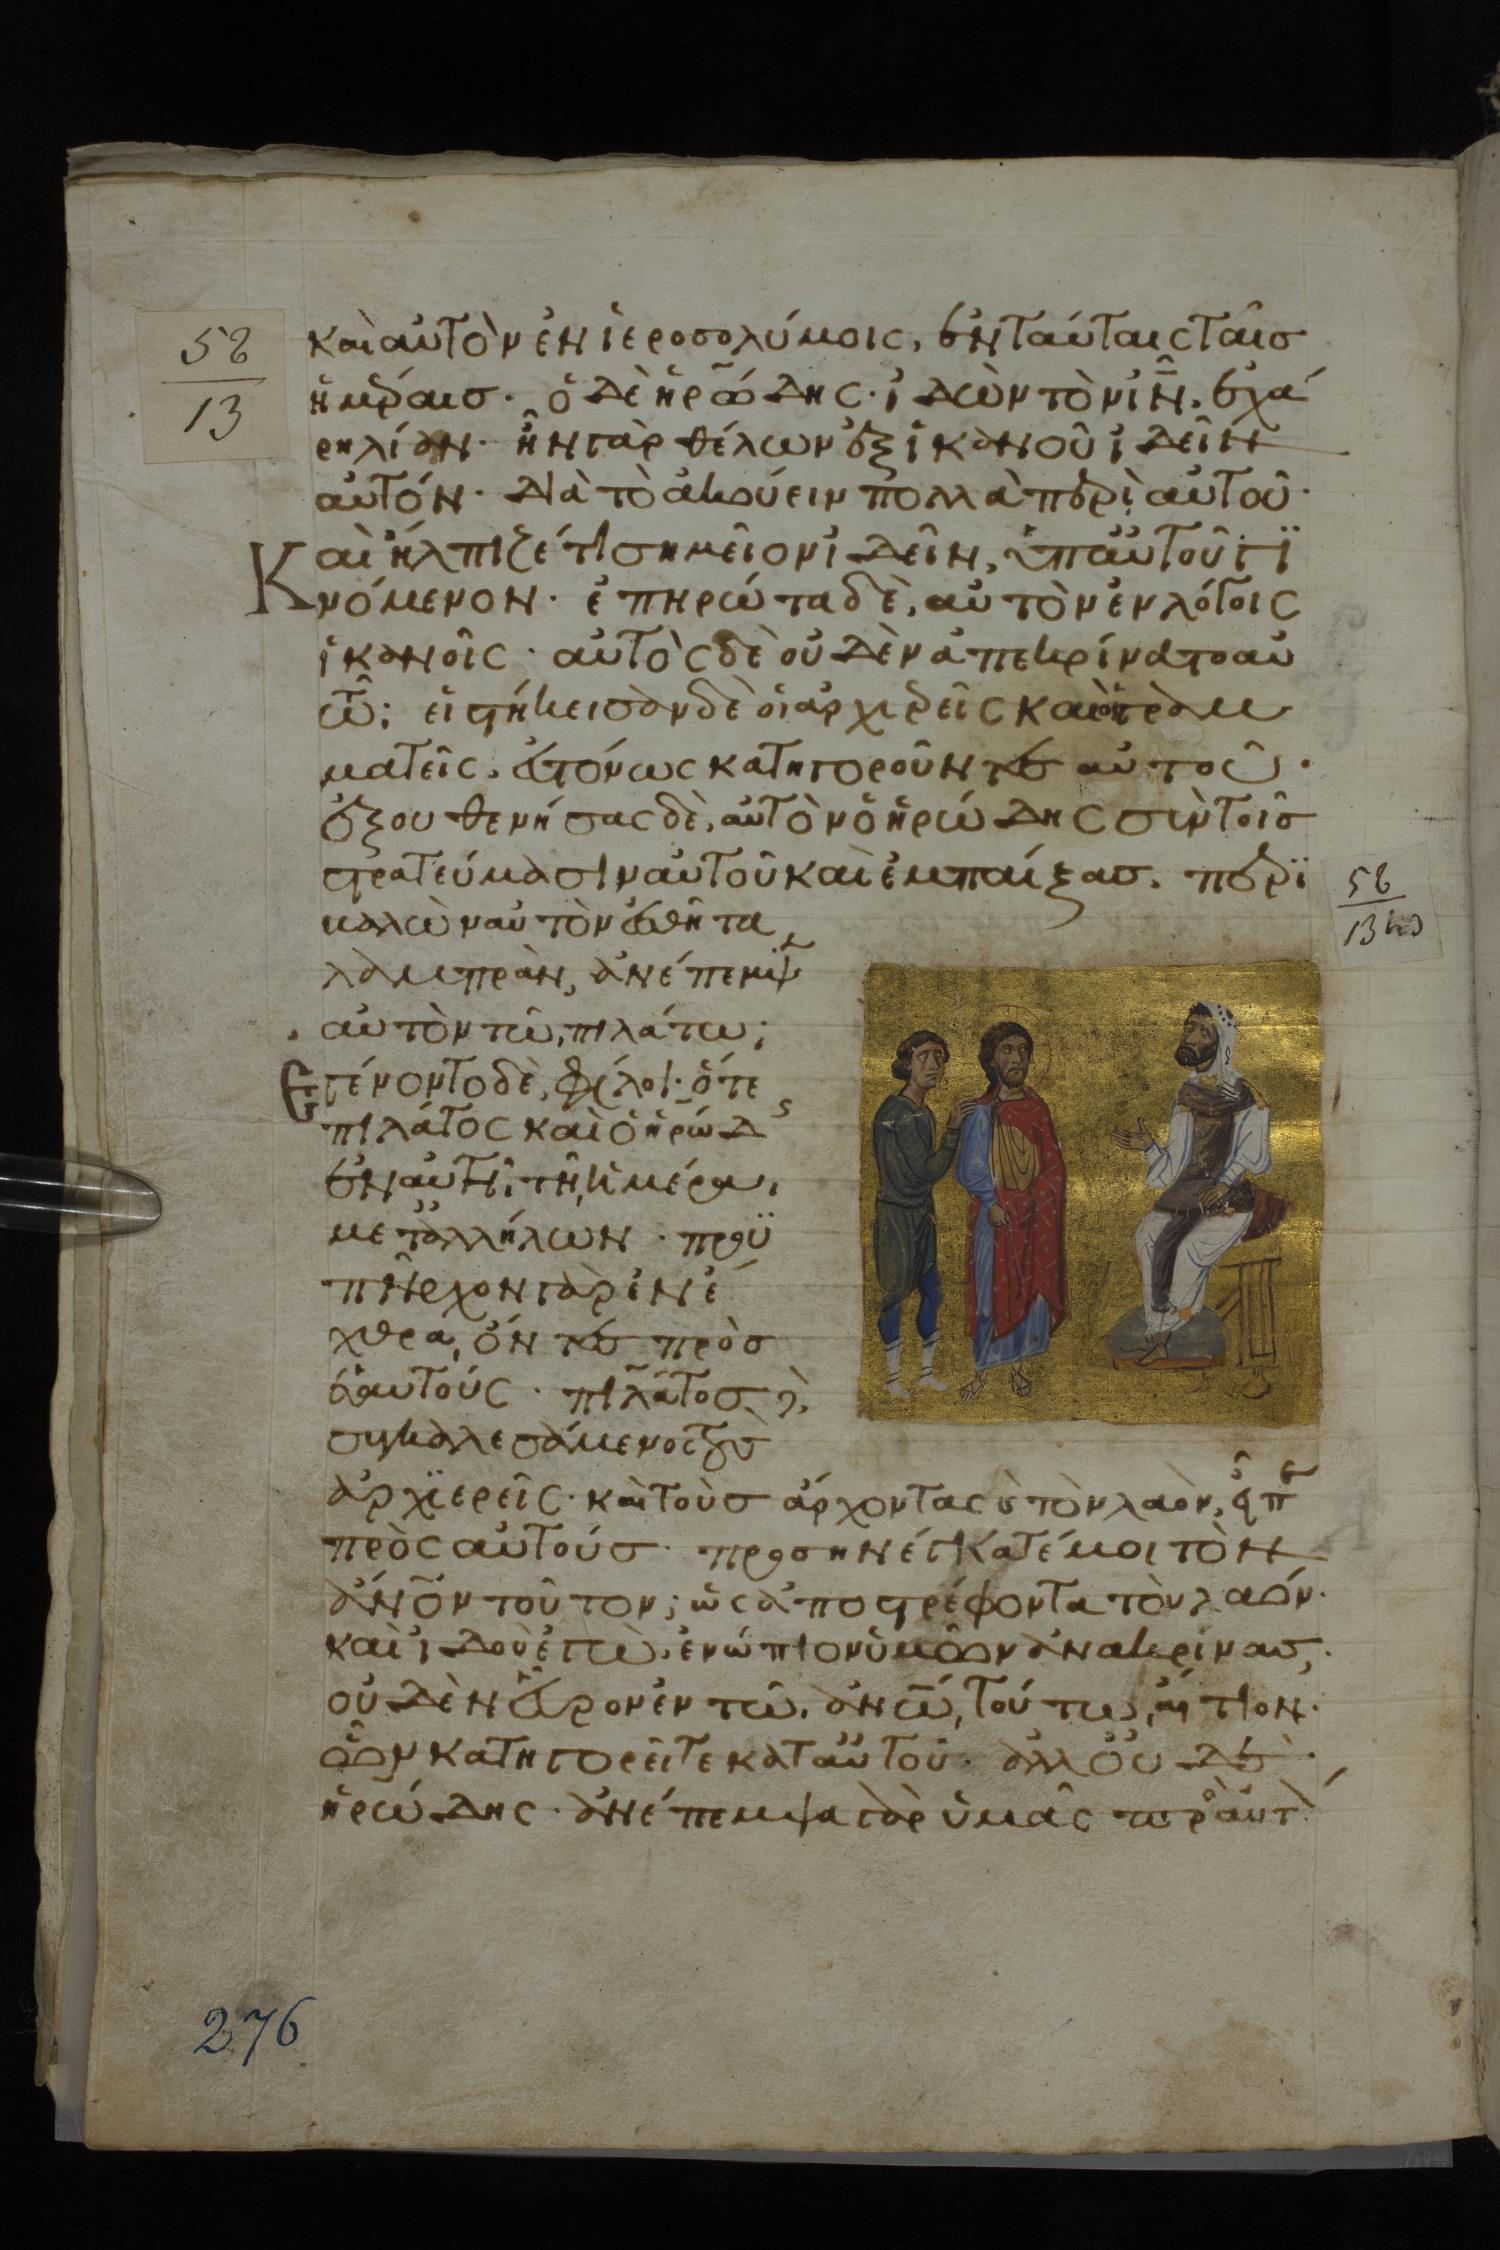 58
13
καὶ αὐτὸν ἐν ἱεροσολύμοις, ἐν ταύταις ταῖσ
ἡμέραισ· ὁ δὲ ἡρώδης· ἰδὼν τὸν ἰν̅, ἐχά
ρη λίαν· ἦν γὰρ θέλων ἐξ ἱκανοῦ ἰδεῖν
αὐτόν· διὰ τὸ ἀκούειν πολλὰ περὶ αὐτοῦ·
Καὶ ἤλπιζέ τι σημεῖον ἰδεῖν, ὑπ' αὐτοῦ γϊ
νόμενον· ἐπηρώτα δὲ, αὐτὸν ἐν λόγοις
ἱκανοῖς· αὐτὸς δὲ οὐδὲν ἀπεκρίνατο αὐ
τῶ· εἰστήκεισαν δὲ οἱ ἀρχιερεῖς καὶ οἱ γραμ
ματεῖς, εὐτόνως κατηγοροῦντες αὐτοῦ·
ἐξουθενήσας δὲ, αὐτὸν ὁ ἡρώδης σὺν τοῖσ
στρατεύμασιν αὐτοῦ καὶ ἐμπαίξασ, περϊ
58
13 bis
βαλὼν αὐτὸν ἐσθῆτα
λαμπρὰν, ἀνέπεμψ
αὐτὸν τῶ πιλάτω·
Ἐγένοντο δὲ, φίλοι· ὅ τε
πιλάτος καὶ ὁ ἡρώδ
ἐν αὐτῆ τῆ ἡμέρα,
μετ' ἀλλήλων· προϋ
πῆρχον γὰρ ἐν ἔ
χθρα, ὄντες πρὸσ
ἑαυτούς· πιλᾶτοσ δὲ
συγκαλεσάμενος τοὺς
ἀρχϊερεῖς· καὶ τοὺσ ἄρχοντας κ τὸν λαὸν, εἶπ
πρὸς αὐτούσ· προσηνέγκατέ μοι τὸν
ἀν̅ον τοῦτον· ὡς ἀποστρέφοντα τὸν λαὸν·
καὶ ἰδοὺ ἐγὼ, ἐνώπιον ὑμῶν ἀνακρίνασ,
οὐδὲν εὗρον ἐν τῶ ἀν̅ω τούτω, αἴτιον·
ὧν κατηγορεῖτε κατ' αὐτοῦ· ἀλλ' οὐδὲ·
ἡρώδης· ἀνέπεμψα γὰρ ὑμᾶς πρ αὐτ
276